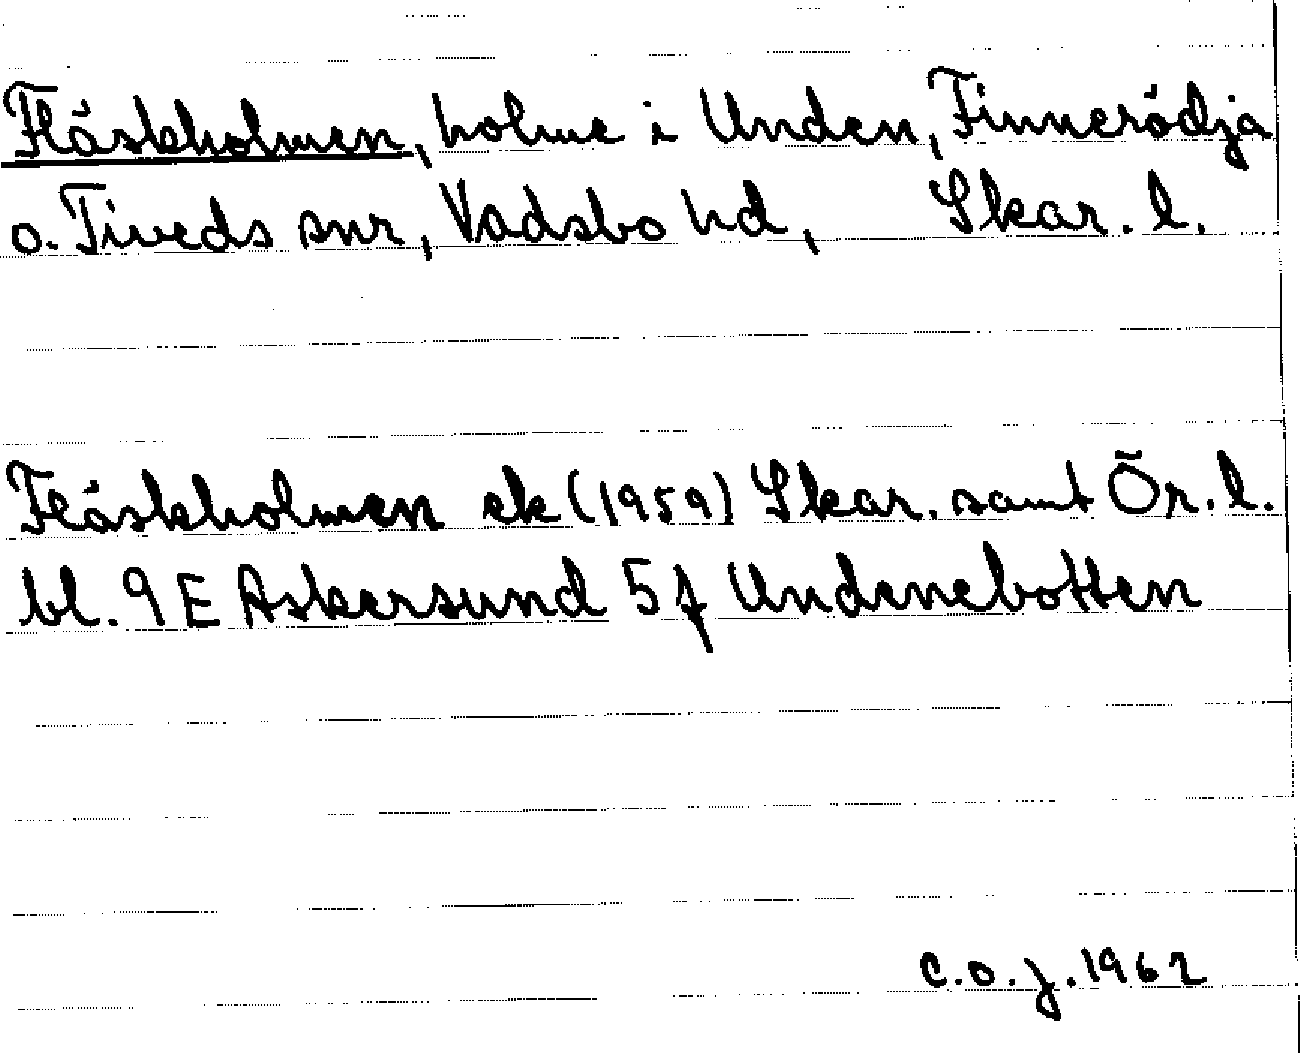 Fläskholmen, holme i Unden, Finnerödja
o. Tiveds snr, Vadsbo hd, Skar. l.
Fläskholmen ek (1959) Skar. samt Ör. l.
bl. 9 E Askersund 5 f Undenebotten
C.O.J. 1962